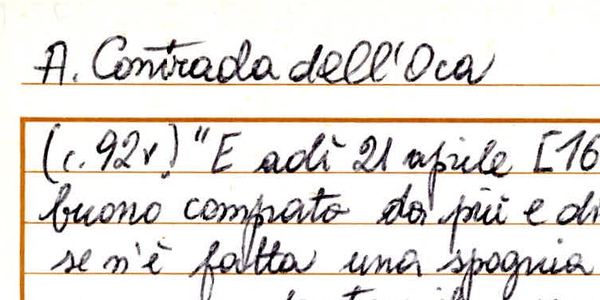 A. Contrada dell'Oca
(c. 92v) "E adì 21 aprile [16
buono comprato da più e di
se n'è fatta una spognia